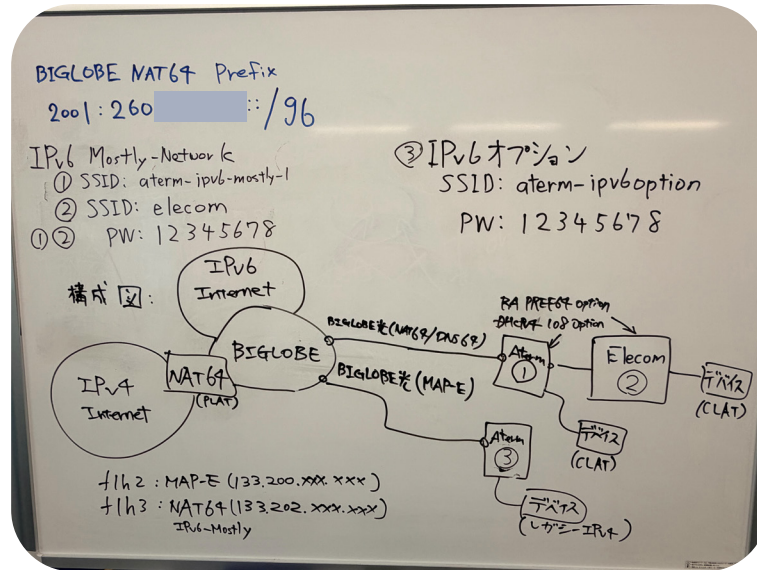 BIGLOBE NAT64 Prefix
2001:260 ::/96
IPv6 Mostly-Network
① SSID: aterm-ipv6-mostly-1
② SSID: elecom
①② PW: 12345678
③ IPv6オプション
SSID: aterm-ipv6option
PW: 12345678
構成図:
IPv6
Internet
BIGLOBE
NAT64
(PLAT)
IPv4
Internet
BIGLOBE光(NAT64/DNS64)
BIGLOBE光(MAP-E)
RA PREF64 option
DHCPv4 108 option
Aterm
①
Elecom
②
デバイス
(CLAT)
デバイス
(CLAT)
Aterm
③
デバイス
(レガシーIPv4)
f1h2: MAP-E (133.200.xxx.xxx)
f1h3: NAT64 (133.202.xxx.xxx)
IPv6-Mostly